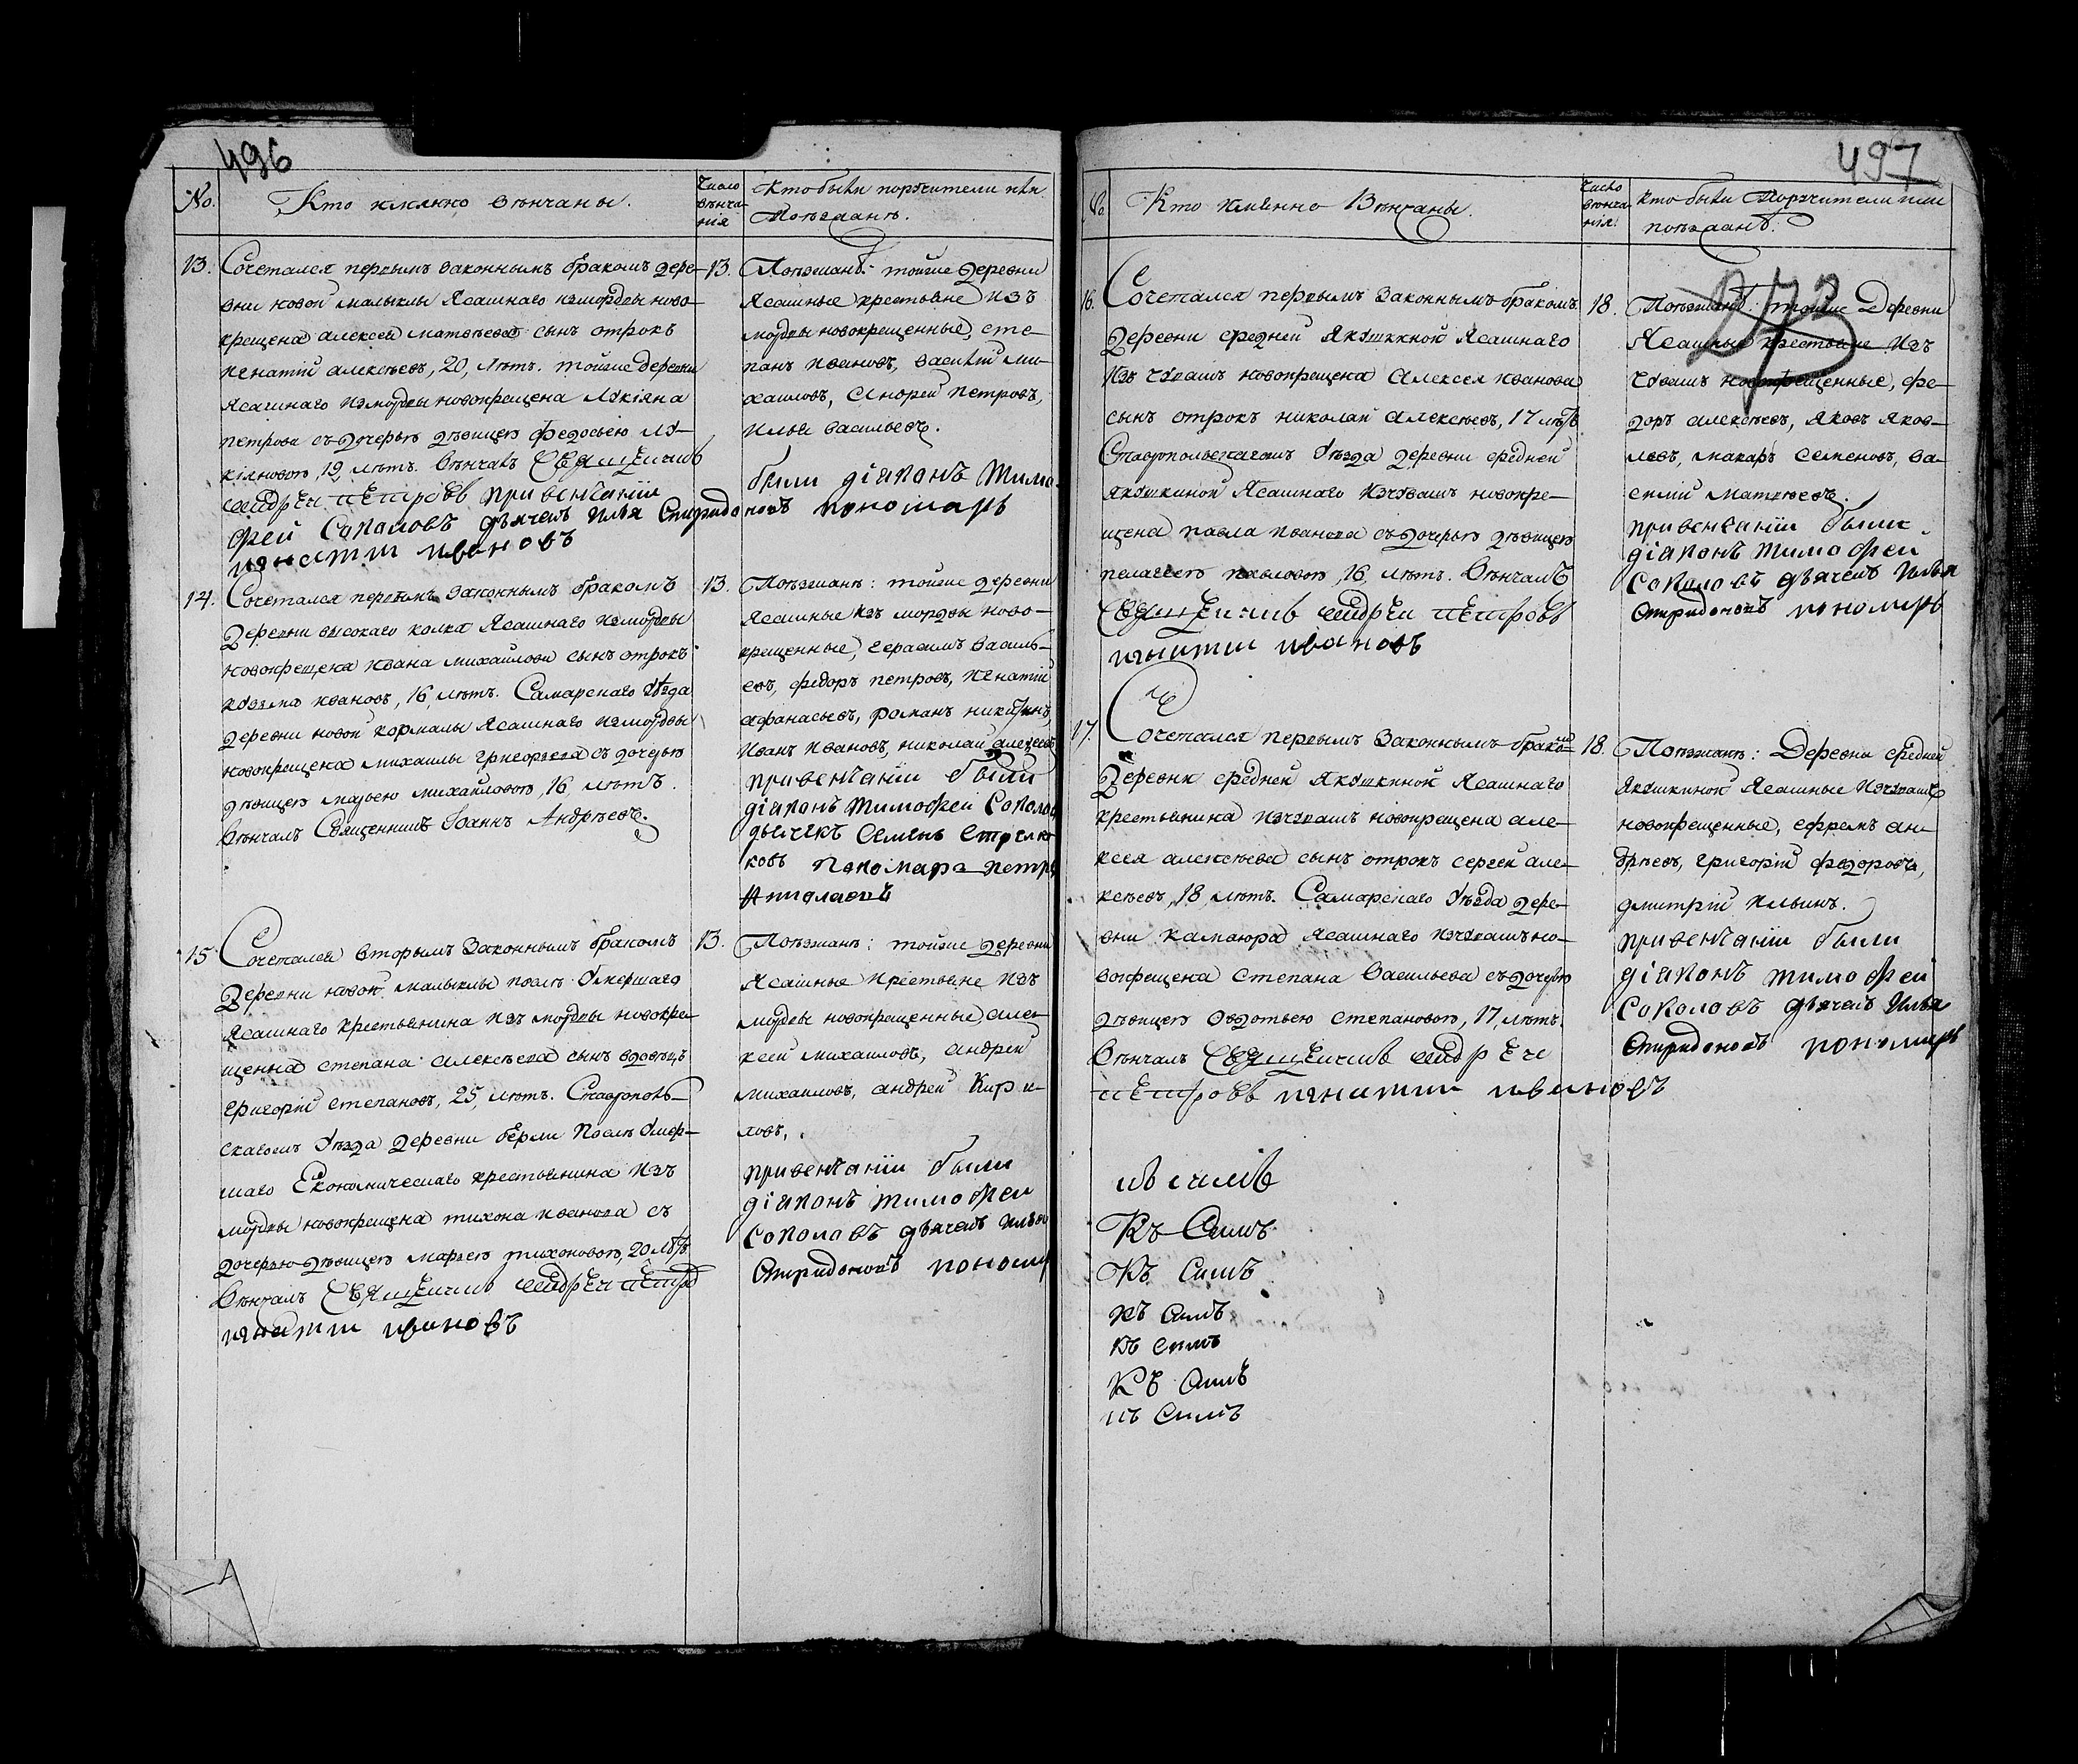 496
№.
Кто имянно Венчаны.
Число
венча-
нія
Кто были поручители или
Поезжанъ.
13.
Сочетался первымъ законнымъ бракомъ дере-
вни новой малыклы Ясашнаго измордвы ново-
крещена алексея матвеева сынъ отрокъ
игнатий алексеевъ, 20, летъ. тойже деревни
Ясашнаго измордвы новокрещена Лукіяна
петрова съ дочерью девицею федосьею лу-
кіяновою, 19 летъ. Венчалъ Священникъ
Андрей Петровъ при венчании
фей Соколовъ дьячекъ Илья Спиридо
игнатии ивановъ
13.
Поезжанъ: тойже деревни
Ясашные крестьяне изъ
мордвы новокрещенные, сте-
панъ Ивановъ, василий ми-
хаиловъ, Андреи петровъ,
илья васильевъ.
были діаконъ Тимо
новъ пономарь
14.
Сочетался первымъ законнымъ бракомъ
Деревни высокаго колка Ясашнаго измордвы
новокрещена ивана михаилова сынъ отрокъ
кузма ивановъ, 16, летъ. Самарскаго уезда
деревни новой кармалы Ясашнаго измордвы
новокрещена михаилы григорьева съ дочерью
девицею марьею михаиловою, 16 летъ.
Венчалъ Священникъ Іоаннъ Андреевъ.
13.
Поезжанъ: тойже деревни
Ясашные изъ мордвы ново-
крещенные, герасимъ василь-
евъ, федоръ петровъ, игнатий
афанасьевъ, романъ никитинъ,
иванъ ивановъ, николаи алексеевъ
привенчании были
діаконъ тимофеи Соколов
дьячекъ Семенъ Стрелко
ковъ пономарь петръ
Николаевъ
15
Сочетался вторымъ законнымъ бракомъ
Деревни новой малыклы после умершаго
Ясашнаго крестьянина изъ мордвы новокре-
щенна степана алексеева сынъ вдовецъ
григорий степановъ, 25, летъ. Ставрополь-
скагожъ уезда деревни берли после умер-
шаго Економическаго крестьянина изъ
мордвы новокрещена тихона иванова съ
дочерью девицею марьею тихоновою, 20 летъ
Венчалъ Священникъ Андрей Петров
игнатии ивановъ
13.
Поезжанъ: тойже деревни
Ясашные крестьяне изъ
мордвы новокрещенные, алек
ксеи михаиловъ, андреи
михаиловъ, андреи Кири-
ловъ,
привенчании были
діаконъ тимофеи
Соколовъ дьячекъ Илья
Спиридоновъ пономар
497
№
Кто имянно Венчаны.
Число
венча-
нія.
Кто были Поручители или
поезжанъ.
273
16.
Сочетался первымъ Законнымъ бракомъ
Деревни средней Якушкиной Ясашнаго
Изъ чувашъ новокрещена Алексея иванова
сынъ отрокъ николаи алексеевъ, 17 летъ
Ставропольскагожъ уезда деревни средней
якушкиной Ясашнаго Изчувашъ новокре-
щена павла иванова съ дочерью девицею
пелагеею павловою, 16, летъ. Венчалъ
Священникъ Андрей Петровъ
игнатии ивановъ
18.
Поезжанъ: тойже Деревни
Ясашные крестьяне Изъ
Чувашъ новокрещенные, фе-
доръ алексеевъ, яковъ яков-
левъ, макаръ семеновъ, ва-
силий матвеевъ.
привенчании были
діаконъ тимофеи
Соколовъ дьячекъ Илья
Спиридоновъ пономарь
17.
Сочетался первымъ Законнымъ бракомъ
Деревни средней Якушкиной Ясашнаго
крестьянина изчувашъ новокрещена але-
ксея алексеева сынъ отрокъ сергеи але-
ксеевъ, 18, летъ. Самарскаго уезда дере-
вни камаюра Ясашнаго изчувашъ но-
вокрещена степана Васильева съ дочерью
девицею овдотьею степановою, 17, летъ.
Венчалъ Священникъ Андрей
Петровъ игнатии ивановъ
18.
Поезжанъ: Деревни средней
Якушкиной Ясашные изчувашъ
новокрещенные, ефремъ ан-
дреевъ, григорий федоровъ,
дмитрий ильинъ.
привенчании были
діаконъ тимофеи
Соколовъ дьячекъ Илья
Спиридоновъ пономарь
Къ Симъ
Къ Симъ
къ Симъ
къ симъ
Къ Симъ
къ Симъ